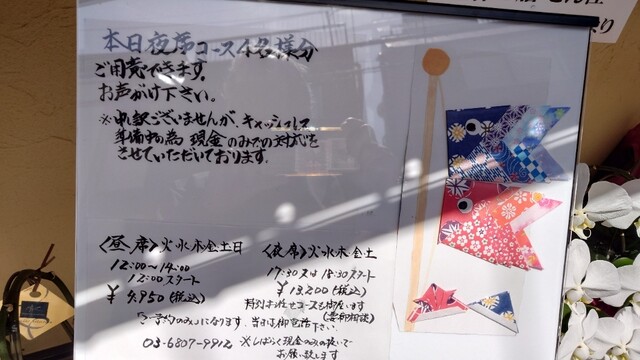 本日夜席コース4名様分
ご用意できます。
お声がけ下さい。
※申訳ございませんが、キャッシュレス
準備中の為 現金のみでの対応を
させていただいております。
〈昼席〉火水木金土日
12:00〜14:00
12:00スタート
¥9,950(税込)
〈夜席〉火水木金土
17:30又は18:30スタート
¥13,200(税込)
特別お任せコースも御座います
(要御相談)
ご予約のみになります。当日は御電話下さい。
03-6807-9912 ※しばらく現金のみの扱いで
お願い致します